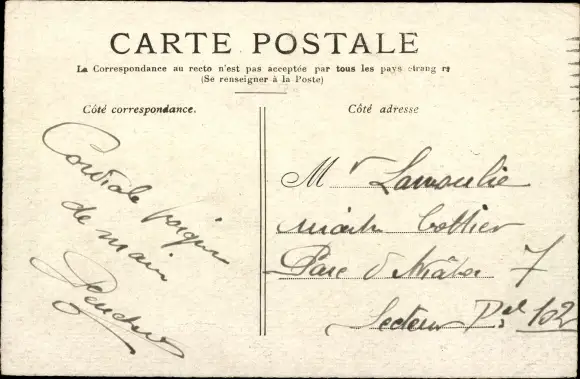 CARTE POSTALE
La Correspondance au recto n'est pas acceptée par tous les pays étrang rs
(Se renseigner à la Poste)
Côté correspondance.
Côté adresse
Cordiale poignée
de main
Mr Lamoulie
Parc d 7
Secteur Pal 102